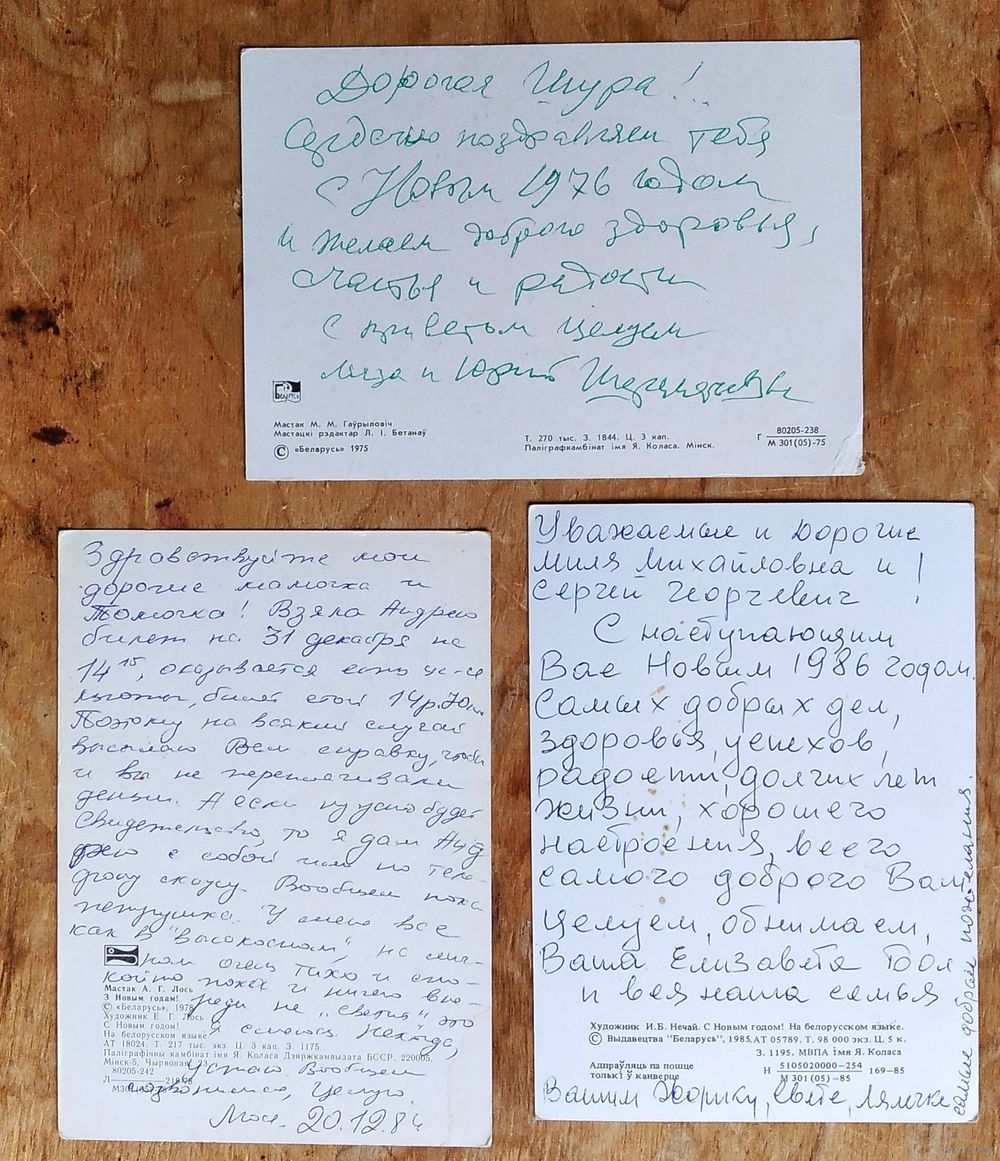 Дорогая Шура!..
Сердечно поздравляем тебя
с Новым 1976 годом
и желаем доброго здоровья,
счастья и радости
с приветом целуем
и Юрий
Беларусь
Мастак М. М. Гаўрыловіч
Мастацкі рэдактар Л. І. Бетанаў
© «Беларусь» 1975
Т. 270 тыс. З. 1844. Ц. 3 кап.
Паліграфкамбінат імя Я. Коласа. Мінск.
Г 80205-238
М 301(05)-75
Здравствуйте мои
дорогие мамочка и
Томочка! Взяла Андрею
билет на 31 декабря на
14 15, оказывается есть
льготы, билет стоит 14р.70к.
Поэтому на всякий случай
высылаю Вам справку, чтобы
и вы не переплачивали
деньги. А если нужно будет
свидетельство, то я дам Анд
рею с собой или по теле-
фону скажу. Вообщем пока
петрушка. У меня все
как в "высокосном", но
ном очень тихо и спо-
койно пока и ничего впе-
реди не "светит" это
я смеюсь. Некогда,
устаю. Вообщем
созвонимся, Целую.
20.12.84
Мастак А. Г. Лось
З Новым годам!
© «Беларусь», 1978
Художник Е. Г. Лось
С Новым годом!
На белорусском языке
АТ 18024. Т. 217 тыс. экз. Ц. 3 кап. З. 1175.
Паліграфічны камбінат імя Я. Коласа Дзяржкамвыдата БССР, 220005,
Мінск-5, Чырвоная, 23
80205-242
Уважаемые и Дорогие
Миля Михайловна и !
Сергей Георгиевич
С наступающим
Вас Новым 1986 годом.
Самых добрых дел,
здоровья, успехов,
радости, долгих лет
жизни, хорошего
настроения, всего
самого доброго Вам.
Целуем, обнимаем,
Ваша Елизавета
и вся наша семья
Художник И.Б. Нечай. С Новым годом! На белорусском языке.
© Выдавецтва "Беларусь", 1985. АТ 05789. Т. 98 000 экз. Ц. 5 к.
З. 1195. МВПА імя Я. Коласа
Адпраўляць па пошце
толькі ў канверце
Н 5105020000-254
М 301(05)-85
169-85
Вашим Жорику, Свете, Лялечке
самые добрые пожелания.